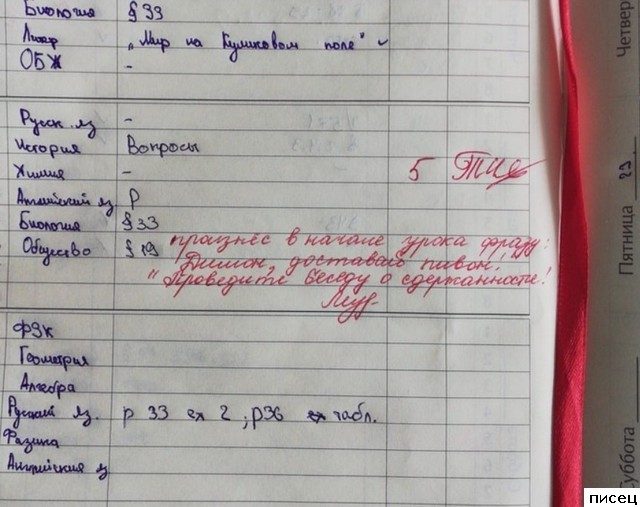 Биология § 33
Литер „Мир на Куликовом поле"
ОБЖ -
Русск. яз -
История Вопросы
Химия - 5
Английский яз P
Биология § 33
Общество § 19 произнёс в начале урока фразу:
Димон, доставай пивон!
"Проведите беседу о сдержанности!
ФЗК
Геометрия
Алгебра
Русский яз. р 33 2 ; р36 табл.
Физика
Английский яз
Четверг
Пятница 23
Суббота
писец